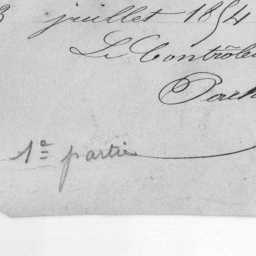 juillet 1854
Le Contrôleu
1e partie